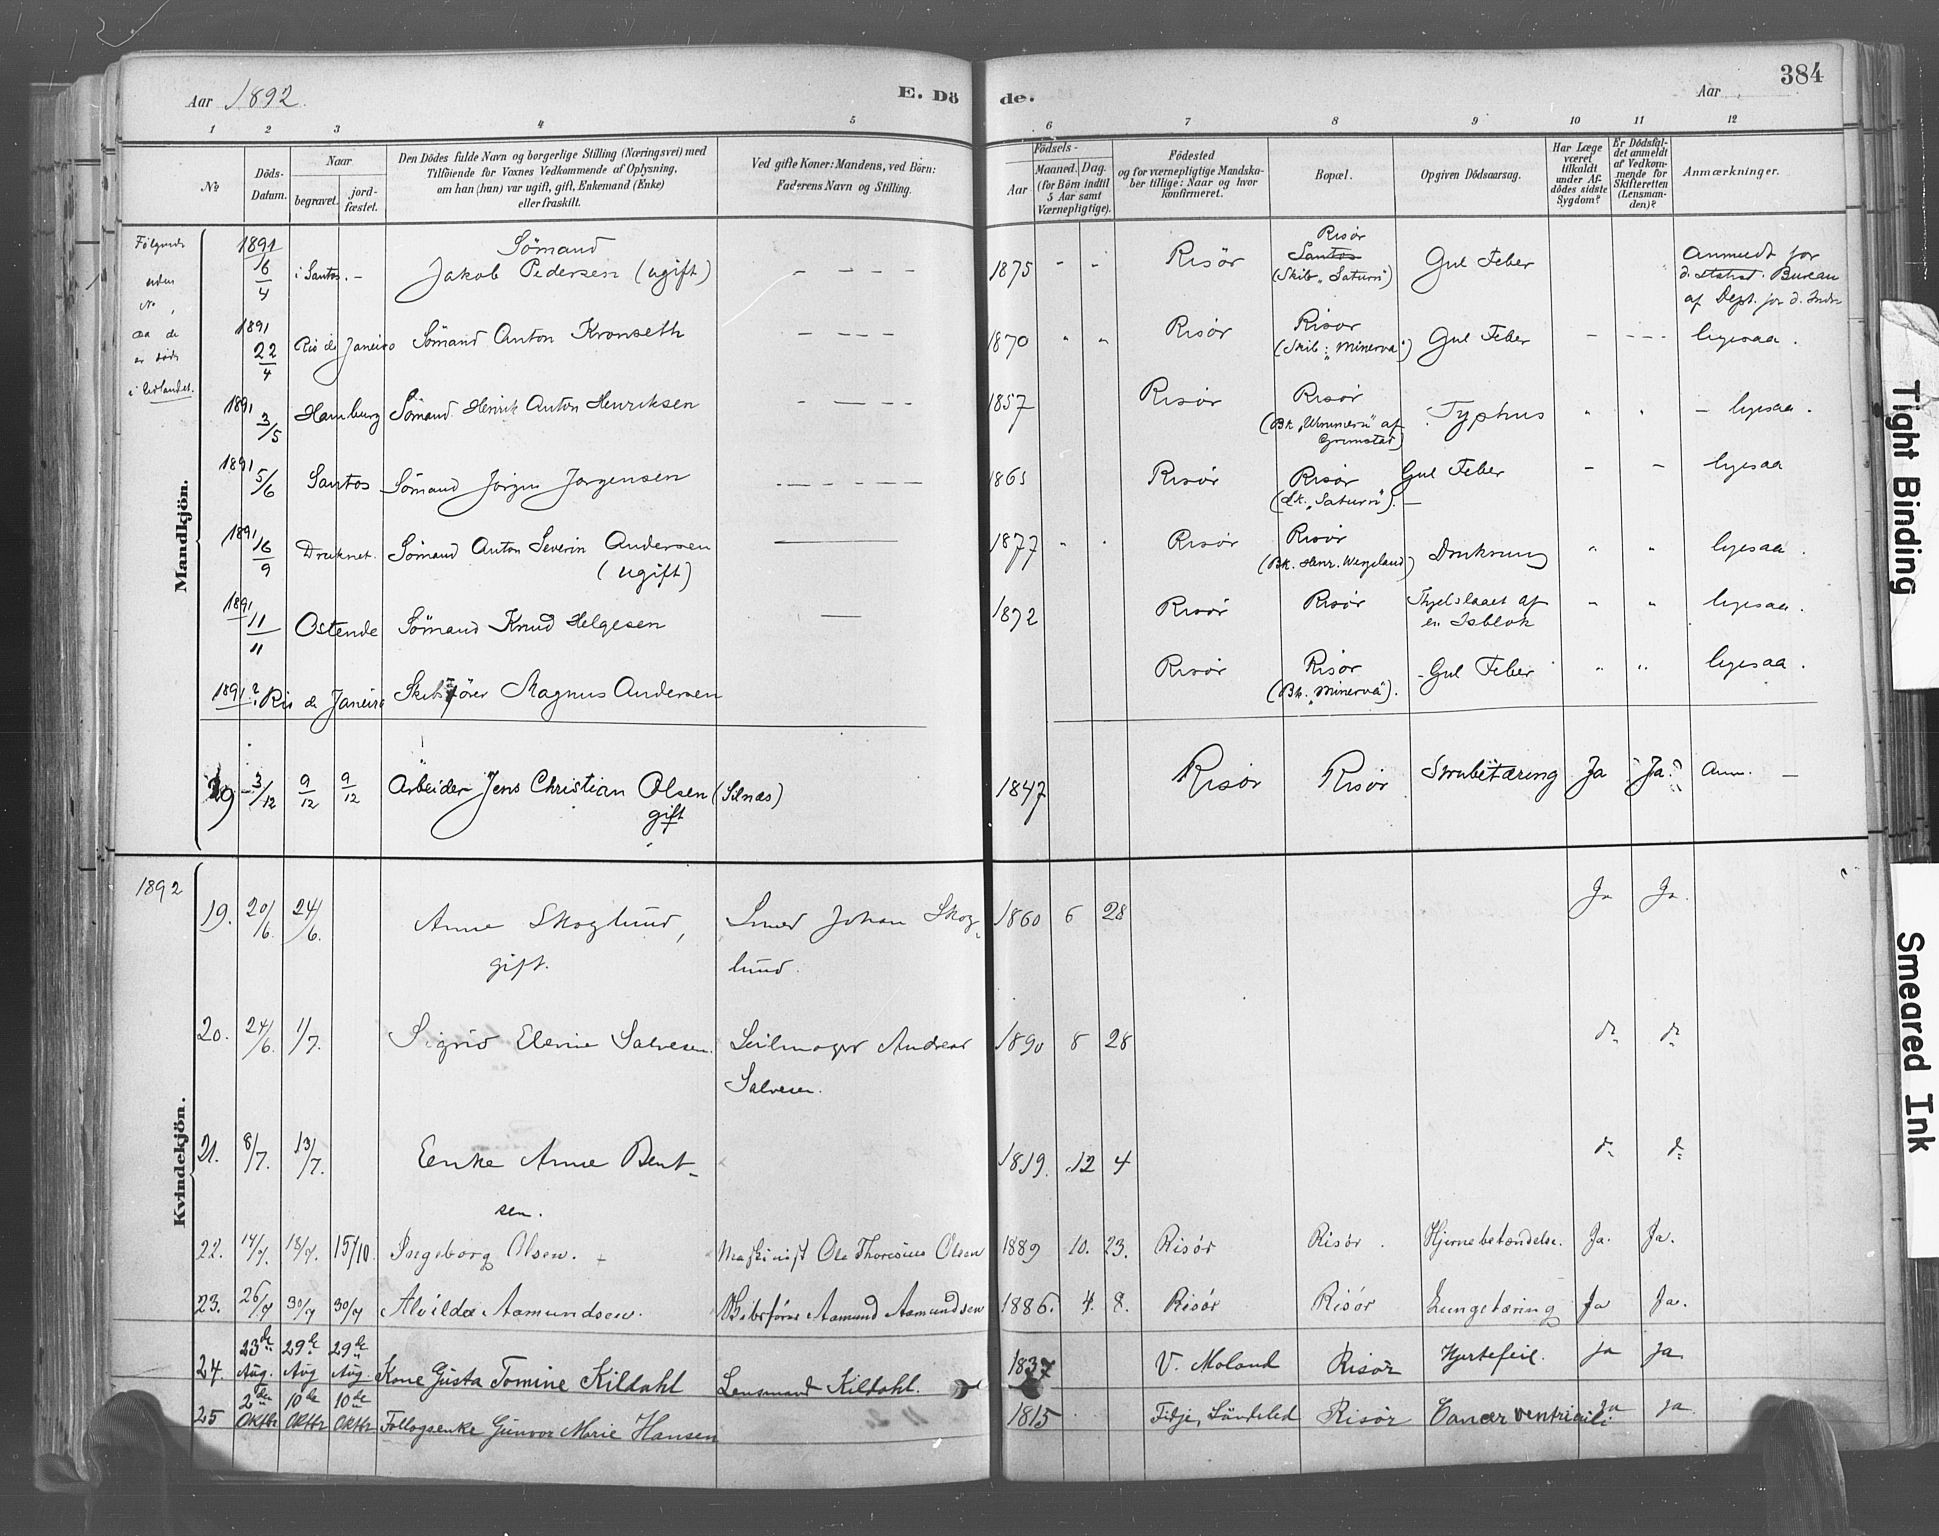 384
Aar 1892.
E. Dö de.
Aar
1 2 3 4 5 6 7 8 9 10 11 12
No
Döds-Datum.
Naar
begravet.
jord-fæstet.
Den Dödes fulde Navn og borgerlige Stilling (Næringsvei) med
Tilföiende for Voxnes Vedkommende af Oplysning,
om han (hun) var ugift, gift, Enkemand (Enke)
eller fraskilt.
Ved gifte Koner: Mandens, ved Börn:
Faderens Navn og Stilling.
Födsels-
Aar
Maaned. Dag.
(for Börn indtil
5 Aar samt
Værnepligtige).
Födested
og for værnepligtige Mandska-
ber tillige: Naar og hvor
konfirmeret.
Bopæl.
Opgiven Dödsaarsag.
Har Læge
været
tilkaldt
under Af-
dödes sidste
Sygdom?
Er Dödsfal-
det anmeldt
af Vedkom-
mende for
Skifteretten
(Lensman-
den)?
Anmærkninger.
Mandkjön.
Følgende
uden
No,
da de
er døde
i Udlandet.
1891 16/4 i Santos. – Sömand Jakob Pedersen (ugift) – – – – 1875 " " Risör Risör Santos (Skib „Saturn") Gul Feber Anmeldt for
d. statist. Bureau
af Dept. for d. Indre
1891 22/4 Rio de Janeiro Sömand Anton Kronseth – – – 1870 " " Risör Risør (Skib „Minerva") Gul Feber – – – – ligesaa.
1891 3/5 Hamburg Sömand Henrik Anton Henriksen – – – – 1857 Risör Risör (Bk. af Grimstad) Typhus " " – ligesaa.
1891 5/6 Santos Sömand Jörgen Jörgensen 1865 Risör Risör (Sk. „Saturn"). – Gul Feber – – ligesaa
1891 16/9 Druknet. Sömand Anton Severin Andersen (ugift) 1877 " " Risör Risør (Bk. Henr. Wergeland) Drukning " " ligesaa.
1891 11/11 Ostende Sömand Knud Helgesen — 1872 Risör Risör Ihjelslaaet af en Isblok " " ligesaa.
1891? Rio de Janeiro Skibsfører Magnus Andersen Risör Risör (Bk. „Minerva"). Gul Feber " " ligesaa.
29 3/12 9/12 9/12 Arbeider Jens Christian Olsen (Silnæs) gift 1847 Risör Risör Strubetæring Ja Ja. Anm. –
1892
Kvindekjön.
19. 20/6. 24/6. Anne Skoglund, gift. Smed Johan Skoglund. 1860 6 28 Ja Ja.
20. 24/6. 1/7. Sigrid Elenie Salvesen. Seilmager Andreas Salvesen. 1890 8 28 do do
21. 8/7. 13/7. Enke Anne Bentsen. 1819. 12 4 do do
22. 14/7. 18/7. 15/10. Ingeborg Olsen. Maskinist Ole Thoresius Olsen 1889 10. 23. Risör Risör. Hjernebetændelse. Ja. Ja.
23. 26/7 30/7 30/7 Alvilde Aamundsen. Skibsförer Aamund Aamundsen 1886. 4. 8. Risör Risör Lungetæring Ja Ja.
24. 23de Aug. 29de Aug 29de Aug. Kone Gusta Tomine Kildahl Lensmand Kildahl. 1837 V. Moland Risör Hjertefeil. ja ja
25 2den Oktbr 10de Oktbr 10de Oktbr Follogsenke Gunvor Marie Hansen 1815 Fidje, Söndeled Risör Cancer ventriculi ja ja
Tight Binding
Smeared Ink